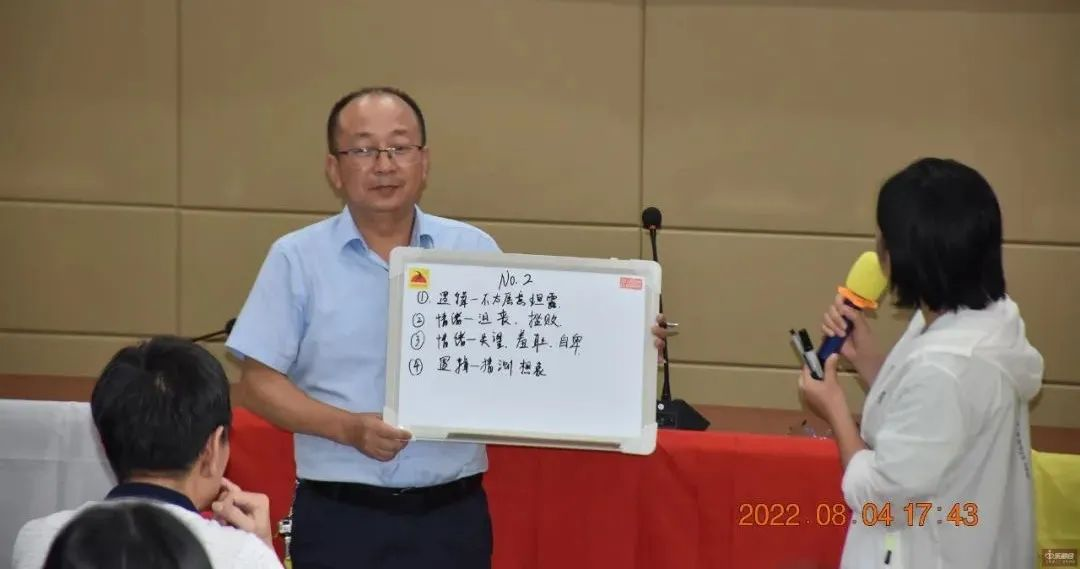 No.2
①. 逻辑—不为居安坦露
② 情绪—沮丧、挫败
③ 情绪—失望、羞耻、自卑
④ 逻辑—猜测想表
2022.08.04 17:43